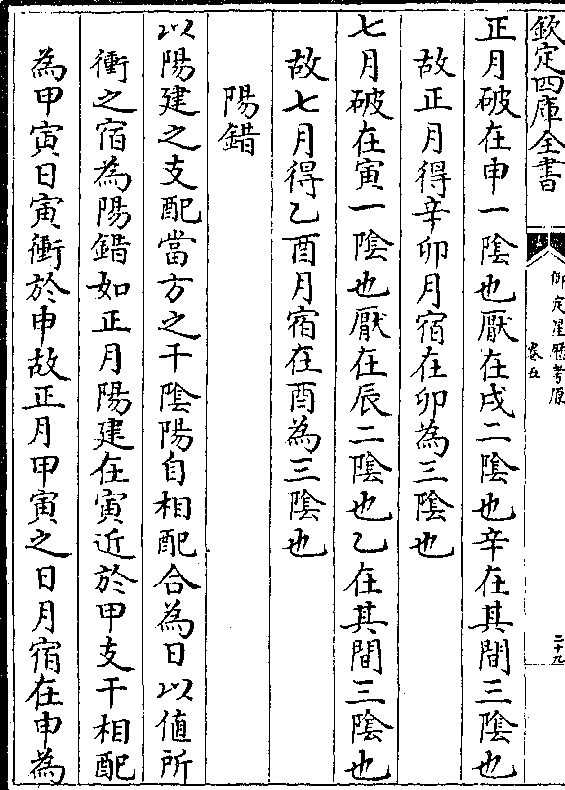 欽定四庫全書
御定星歷考原
卷五
二十九
正月破在申一陰也厭在戌二陰也辛在其間三陰也
故正月得辛卯月宿在卯為三陰也
七月破在寅一陰也厭在辰二陰也乙在其間三陰也
故七月得乙酉月宿在酉為三陰也
陽錯
以陽建之支配當方之干陰陽自相配合為日以值所
衝之宿為陽錯如正月陽建在寅近於甲支干相配
為甲寅日寅衝於申故正月甲寅之日月宿在申為